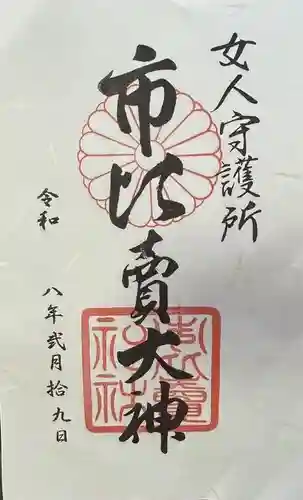 女人守護所
市比賣大神
令和
八年弐月拾九日